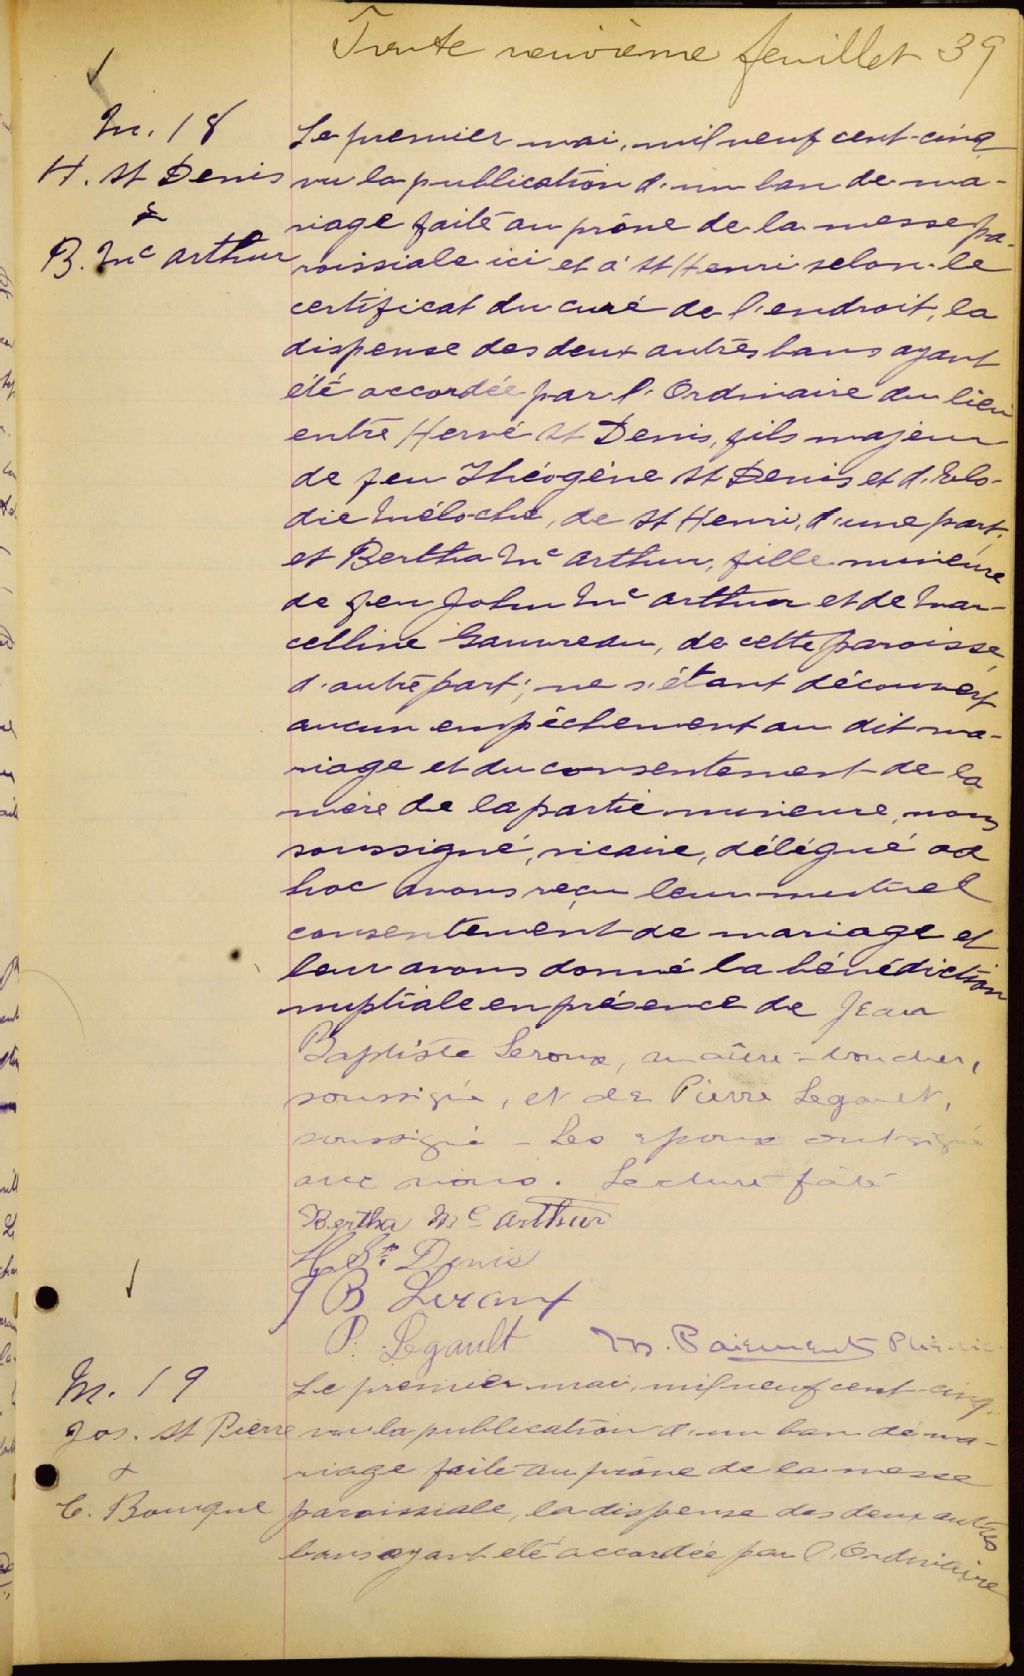 Trente neuvième feuillet 39
M. 18
H. St Denis
&
B. Mc arthur
Le premier mai, mil neuf cent-cinq
vu la publication d'un ban de ma-
riage faite au prône de la messe pa-
roissiale ici et à St Henri selon le
certificat du curé de l'endroit, la
dispense des deux autres bans ayant
été accordée par l'Ordinaire du lieu
entre Hervé St Denis, fils majeur
de feu Théogène St Denis et d'Elo-
die Méloche, de St Henri, d'une part,
et Bertha Mc arthur, fille mineure
de feu John Mc arthur et de Mar-
celline Gauvreau, de cette paroisse,
d'autre part; ne s'étant découvert
aucun empêchement au dit ma-
riage et du consentement de la
mère de la partie mineure, nous
soussigné, vicaire, délégué ad
hoc avons reçu leur mutuel
consentement de mariage et
leur avons donné la bénédiction
nuptiale en présence de Jean
Baptiste Leroux, maître-boucher,
soussigné, et de Pierre Legault,
soussigné - Les epoux ont signé
avec nous. Lecture faite
Bertha Mc arthur
H. St. Denis
J B Leroux
P. Legault M. Paiement Ptre vic
M. 19
Jos. St Pierre
&
C. Bourque
Le premier mai, mil neuf cent-cinq
vu la publication d'un ban de ma-
riage faite au prône de la messe
paroissiale, la dispense des deux autres
bans ayant été accordée par l'Ordinaire